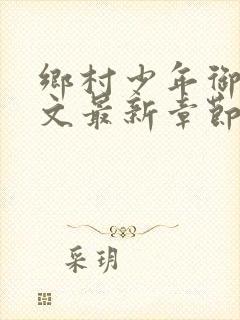 鄉村少年御
文最新章節
采玥